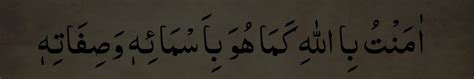 اٰمَنْتُ بِاللهِ كَمَا هُوَ بِاَسْمَائِهٖ وَصِفَاتِهٖ